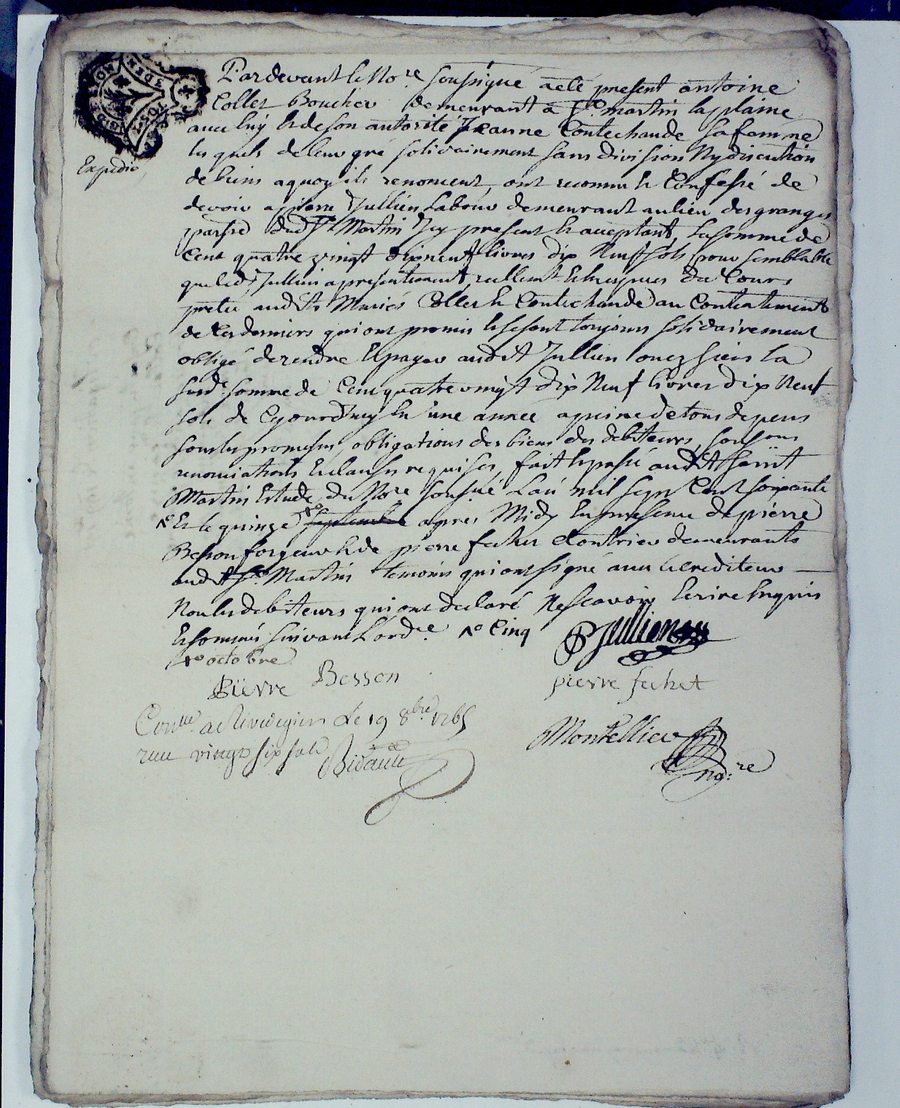 Pardevant le No.re soussigné a été present antoine
Collet Boucher demeurant à St. martin la plaine
avec luy et de son autorité Jeanne Contechaude sa femme
lesquels de leur gré solidairement sans division Ny discution
Expedié
de biens a quoy ils renoncent, ont reconnu et Confessé de
devoir a pierre Jullien Labour demeurant au lieu des granges
parsse dud. St. Martin Icy present et acceptant La somme de
Cent quatre vingt dixneuf livres dix Neuf sols pour semblable
que led. Jullien a presentement reellement et
prété aud. ts Mariés Collet et Contechaude au Contentement
de Ces derniers qui ont promis et se sont toujours solidairement
obligé de rendre et payer audit Jullien ou es siens La
susd.e somme de Cent quatre vingt dix Neuf livres dix Neuf
sols de Cejourdhuy En une année a peine de tous depens
sous les promesses, obligations des biens des debiteurs, soumons
renonciations et clauses requises, fait et passé audt. saint
Martin Etude du No.re sousné Lan mil sept Cent soixante
Et le quinze septembre apres Midy En presence de pierre
Besson forgeur et de pierre fechet Cloutrier demeurants
audt. St. Martin temoins qui ont signé avec le Crediteur
Non les debiteurs qui ont declaré Ne scavoir Ecrire Enquis
Et sommés suivant L'ord.e 1o Cinq
1o octobre
PJullien
pierre Besson
pierre fechet
Con.lle a Rivedegiers Le 19 8bre 1765
reçu vingt six sols
Montellier
No.re